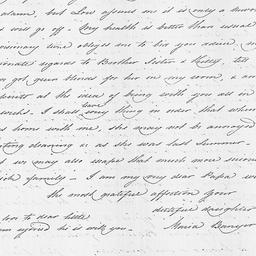 alarm, but Low assures me it is only a
will go off - My health is better than usual
time obliges me to bid you adieu,
regards to Brother Sister & Kitty, tell
got green blinds for her in my room, &
at the idea of being with you all in
I shall have every thing in order, that when
home with me, she may not be annoyed
cleaning &c as she was last Summer -
we may also escape that much more
family - I am my very dear Papa
the most grateful affection your
dutiful daughter
Maria Banyer
love to dear little
he is with you -